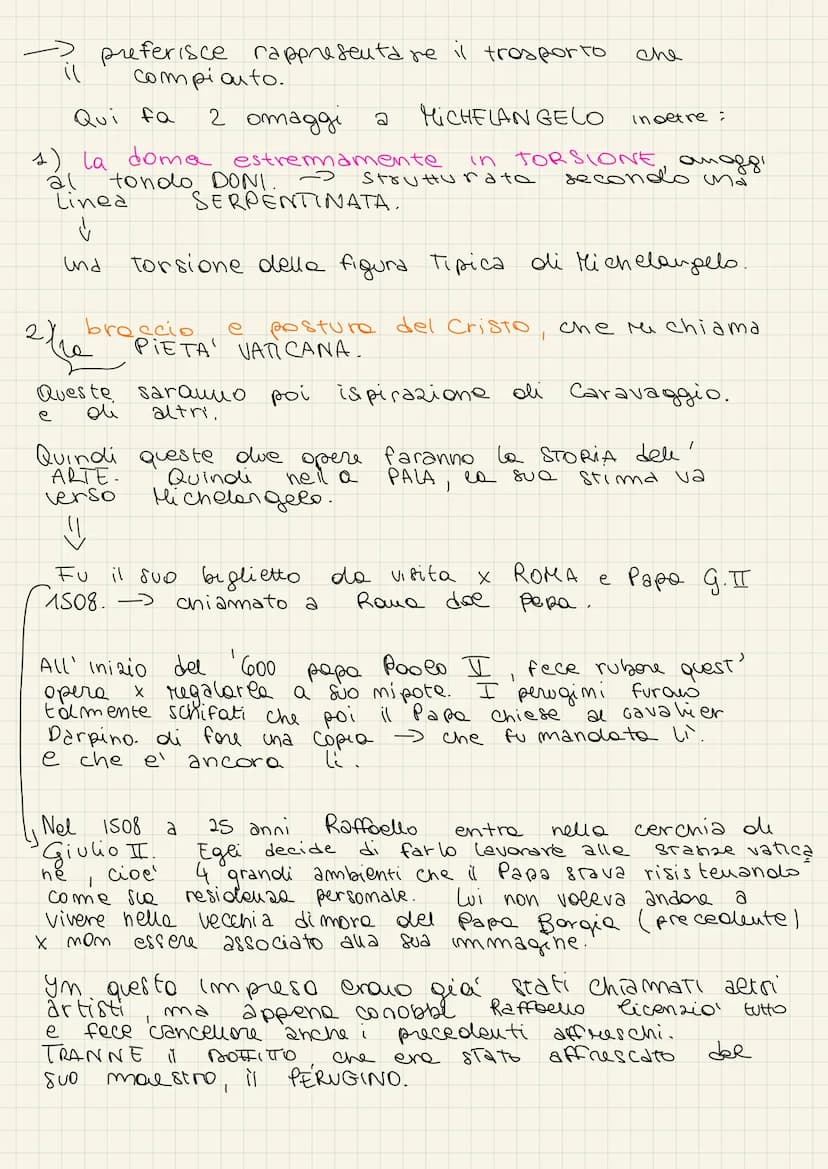 → preferisce rappresentare il trasporto che
il compianto.
Qui fa 2 omaggi a MICHELANGELO inoltre :
1) la donna estremamente in TORSIONE, omaggi
al tondo DONI. → strutturata secondo una
linea SERPENTINATA.
↓
una torsione della figura Tipica di Michelangelo.
2) braccio e postura del Cristo, che richiama
la PIETA' VATICANA.
Queste saranno poi ispirazione di Caravaggio.
e di altri.
Quindi queste due opere faranno la STORIA dell'
ARTE. Quindi nella PALA, la sua stima va
verso Michelangelo.
⇓
Fu il suo biglietto da visita x ROMA e Papa G.II
1508. → chiamato a Roma dal Papa.
All' inizio del '600 papa Paolo V, fece rubare quest'
opera x regalarla a suo nipote. I perugini furono
talmente schifati che poi il Papa chiese al cavalier
Darpino. di fare una copia → che fu mandata lì.
e che e' ancora lì.
Nel 1508 a 25 anni Raffaello entra nella cerchia di
Giulio II. Egli decide di farlo lavorare alle stanze vatica
ne, cioe' 4 grandi ambienti che il Papa stava risistemando
come sua residenza personale. Lui non voleva andare a
vivere nella vecchia dimora del Papa Borgia (precedente)
x non essere associato alla sua immagine.
In questa impresa erano gia' stati chiamati altri
artisti, ma appena conobbe Raffaello licenzio' tutto
e fece cancellare anche i precedenti affreschi.
TRANNE il SOFFITTO, che era stato affrescato dal
suo maestro, il PERUGINO.